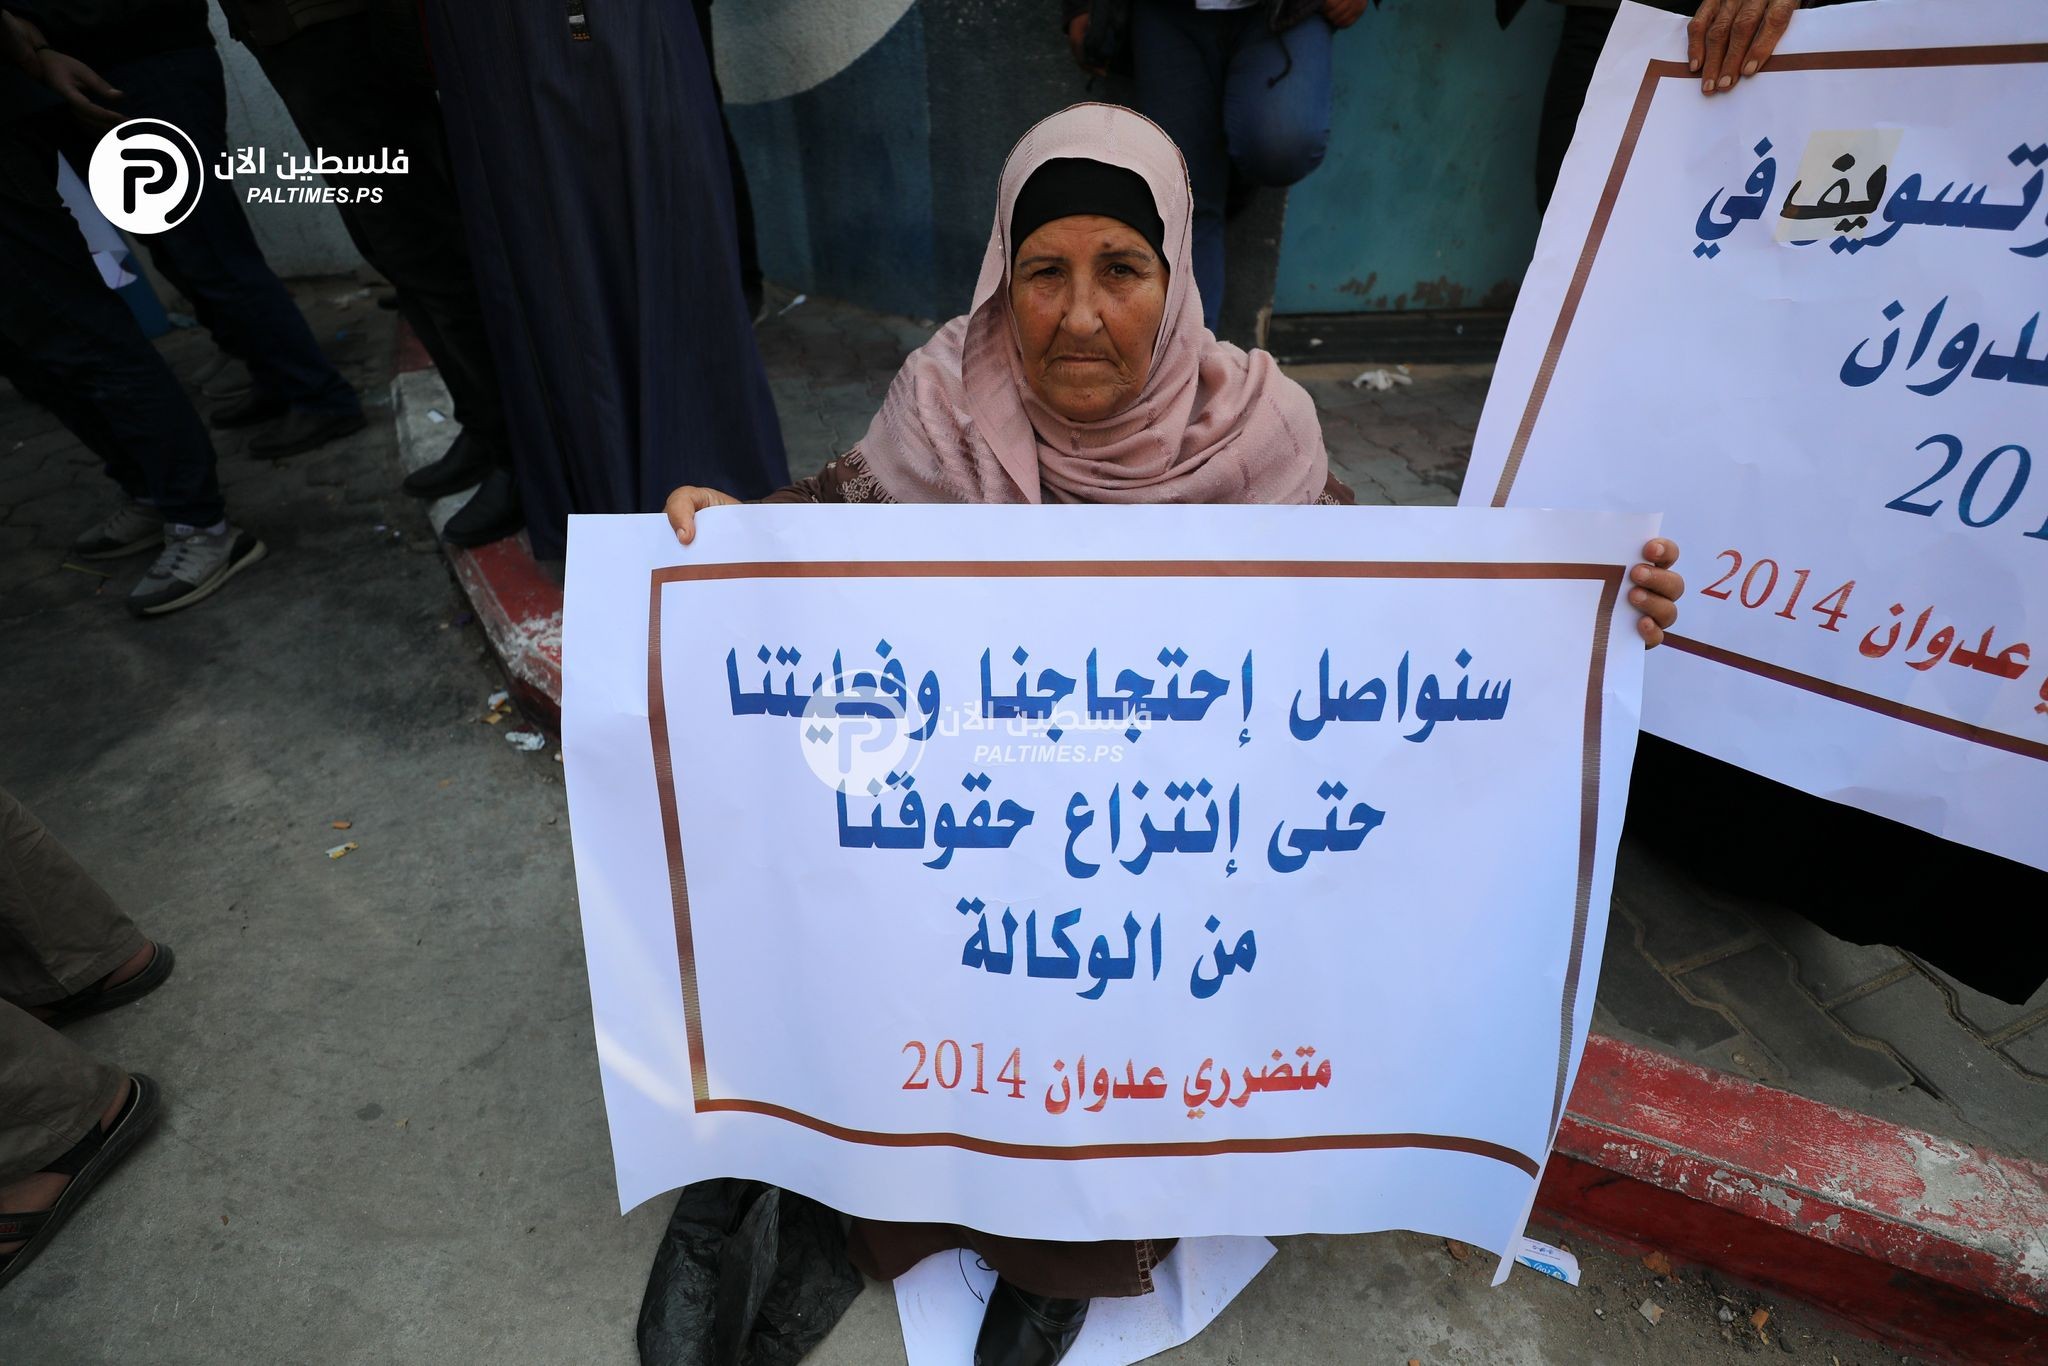 فلسطين الآن
PALTIMES.PS
سنواصل إحتجاجنا وفعليتنا
حتى إنتزاع حقوقنا
من الوكالة
متضرري عدوان 2014
فلسطين الآن
PALTIMES.PS
وتسويف في
عدوان
عدوان 2014